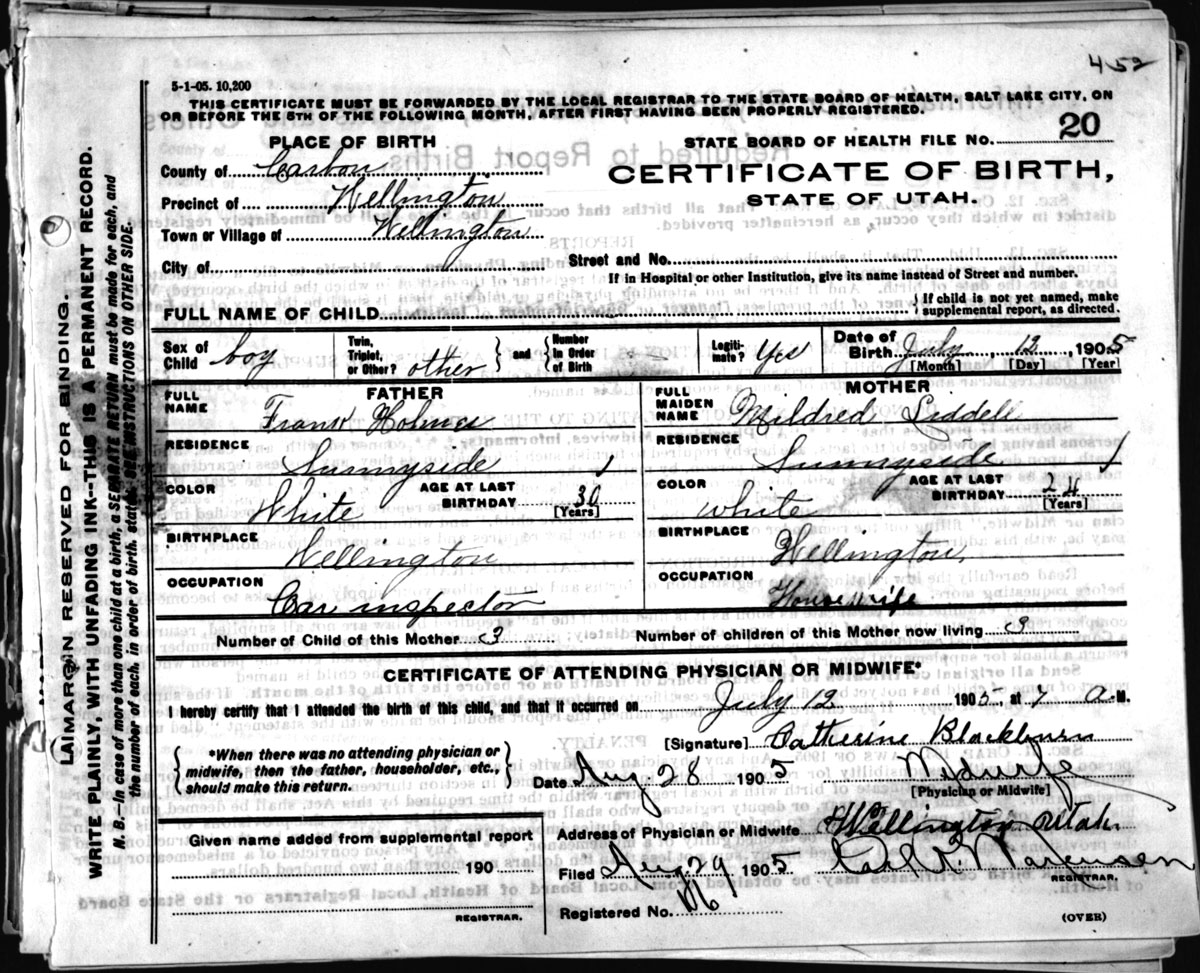 452
5-1-05. 10,200
THIS CERTIFICATE MUST BE FORWARDED BY THE LOCAL REGISTRAR TO THE STATE BOARD OF HEALTH, SALT LAKE CITY, ON
OR BEFORE THE 5TH OF THE FOLLOWING MONTH, AFTER FIRST HAVING BEEN PROPERLY REGISTERED.
PLACE OF BIRTH
STATE BOARD OF HEALTH FILE NO. 20
County of Carbon
CERTIFICATE OF BIRTH,
Precinct of Wellington
STATE OF UTAH.
Town or Village of Wellington
City of
Street and No.
If in Hospital or other Institution, give its name instead of Street and number.
FULL NAME OF CHILD
{ If child is not yet named, make
supplemental report, as directed.
Sex of Child boy
Twin, Triplet, or Other? other } and { Number in Order of Birth
Legitimate? Yes
Date of Birth July, 12, 1905
[Month] [Day] [Year]
FATHER
FULL NAME Frank Holmes
RESIDENCE Sunnyside
COLOR White
AGE AT LAST BIRTHDAY 30
[Years]
BIRTHPLACE Wellington
OCCUPATION Car inspector
MOTHER
FULL MAIDEN NAME Mildred Liddell
RESIDENCE Sunnyside
COLOR white
AGE AT LAST BIRTHDAY 24
[Years]
BIRTHPLACE Wellington,
OCCUPATION Housewife
Number of Child of this Mother 3
Number of children of this Mother now living 3
CERTIFICATE OF ATTENDING PHYSICIAN OR MIDWIFE*
I hereby certify that I attended the birth of this child, and that it occurred on July 12 1905, at 7 a.M.
[Signature] Catherine Blackburn
{ *When there was no attending physician or
midwife, then the father, householder, etc.,
should make this return. }
Date Aug 28 1905 Midwife
[Physician or Midwife]
Given name added from supplemental report
190
REGISTRAR.
Address of Physician or Midwife Wellington Utah
Filed Aug. 29 1905
REGISTRAR.
Registered No.
(OVER)
MARGIN RESERVED FOR BINDING.
WRITE PLAINLY, WITH UNFADING INK--THIS IS A PERMANENT RECORD.
N. B.--In case of more than one child at a birth, a SEPARATE RETURN must be made for each, and
the number of each, in order of birth, stated. SEE INSTRUCTIONS ON OTHER SIDE.